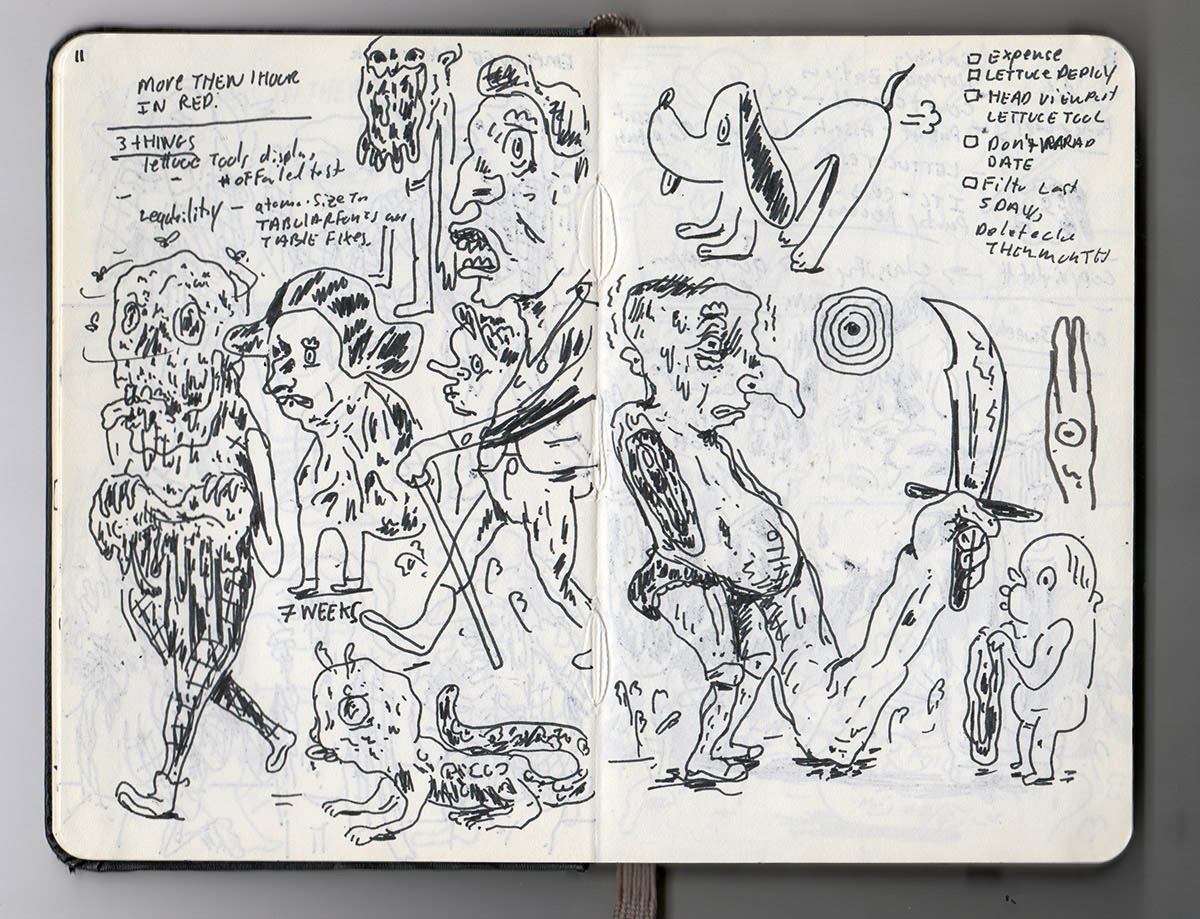 MORE THEN 1 HOUR
IN RED.
3 THINGS
lettuce Tools display
# of failed test
legibility – atomic. size to
TABULAR FONTS on
TABLE FIXES
7 WEEKS
□ EXPENSE
□ LETTUCE DEPLOY
□ HEAD VIEWPORT
LETTUCE TOOL
□ Don't
DATE
□ Filter Last
5 DAYS
THEN MONTHS